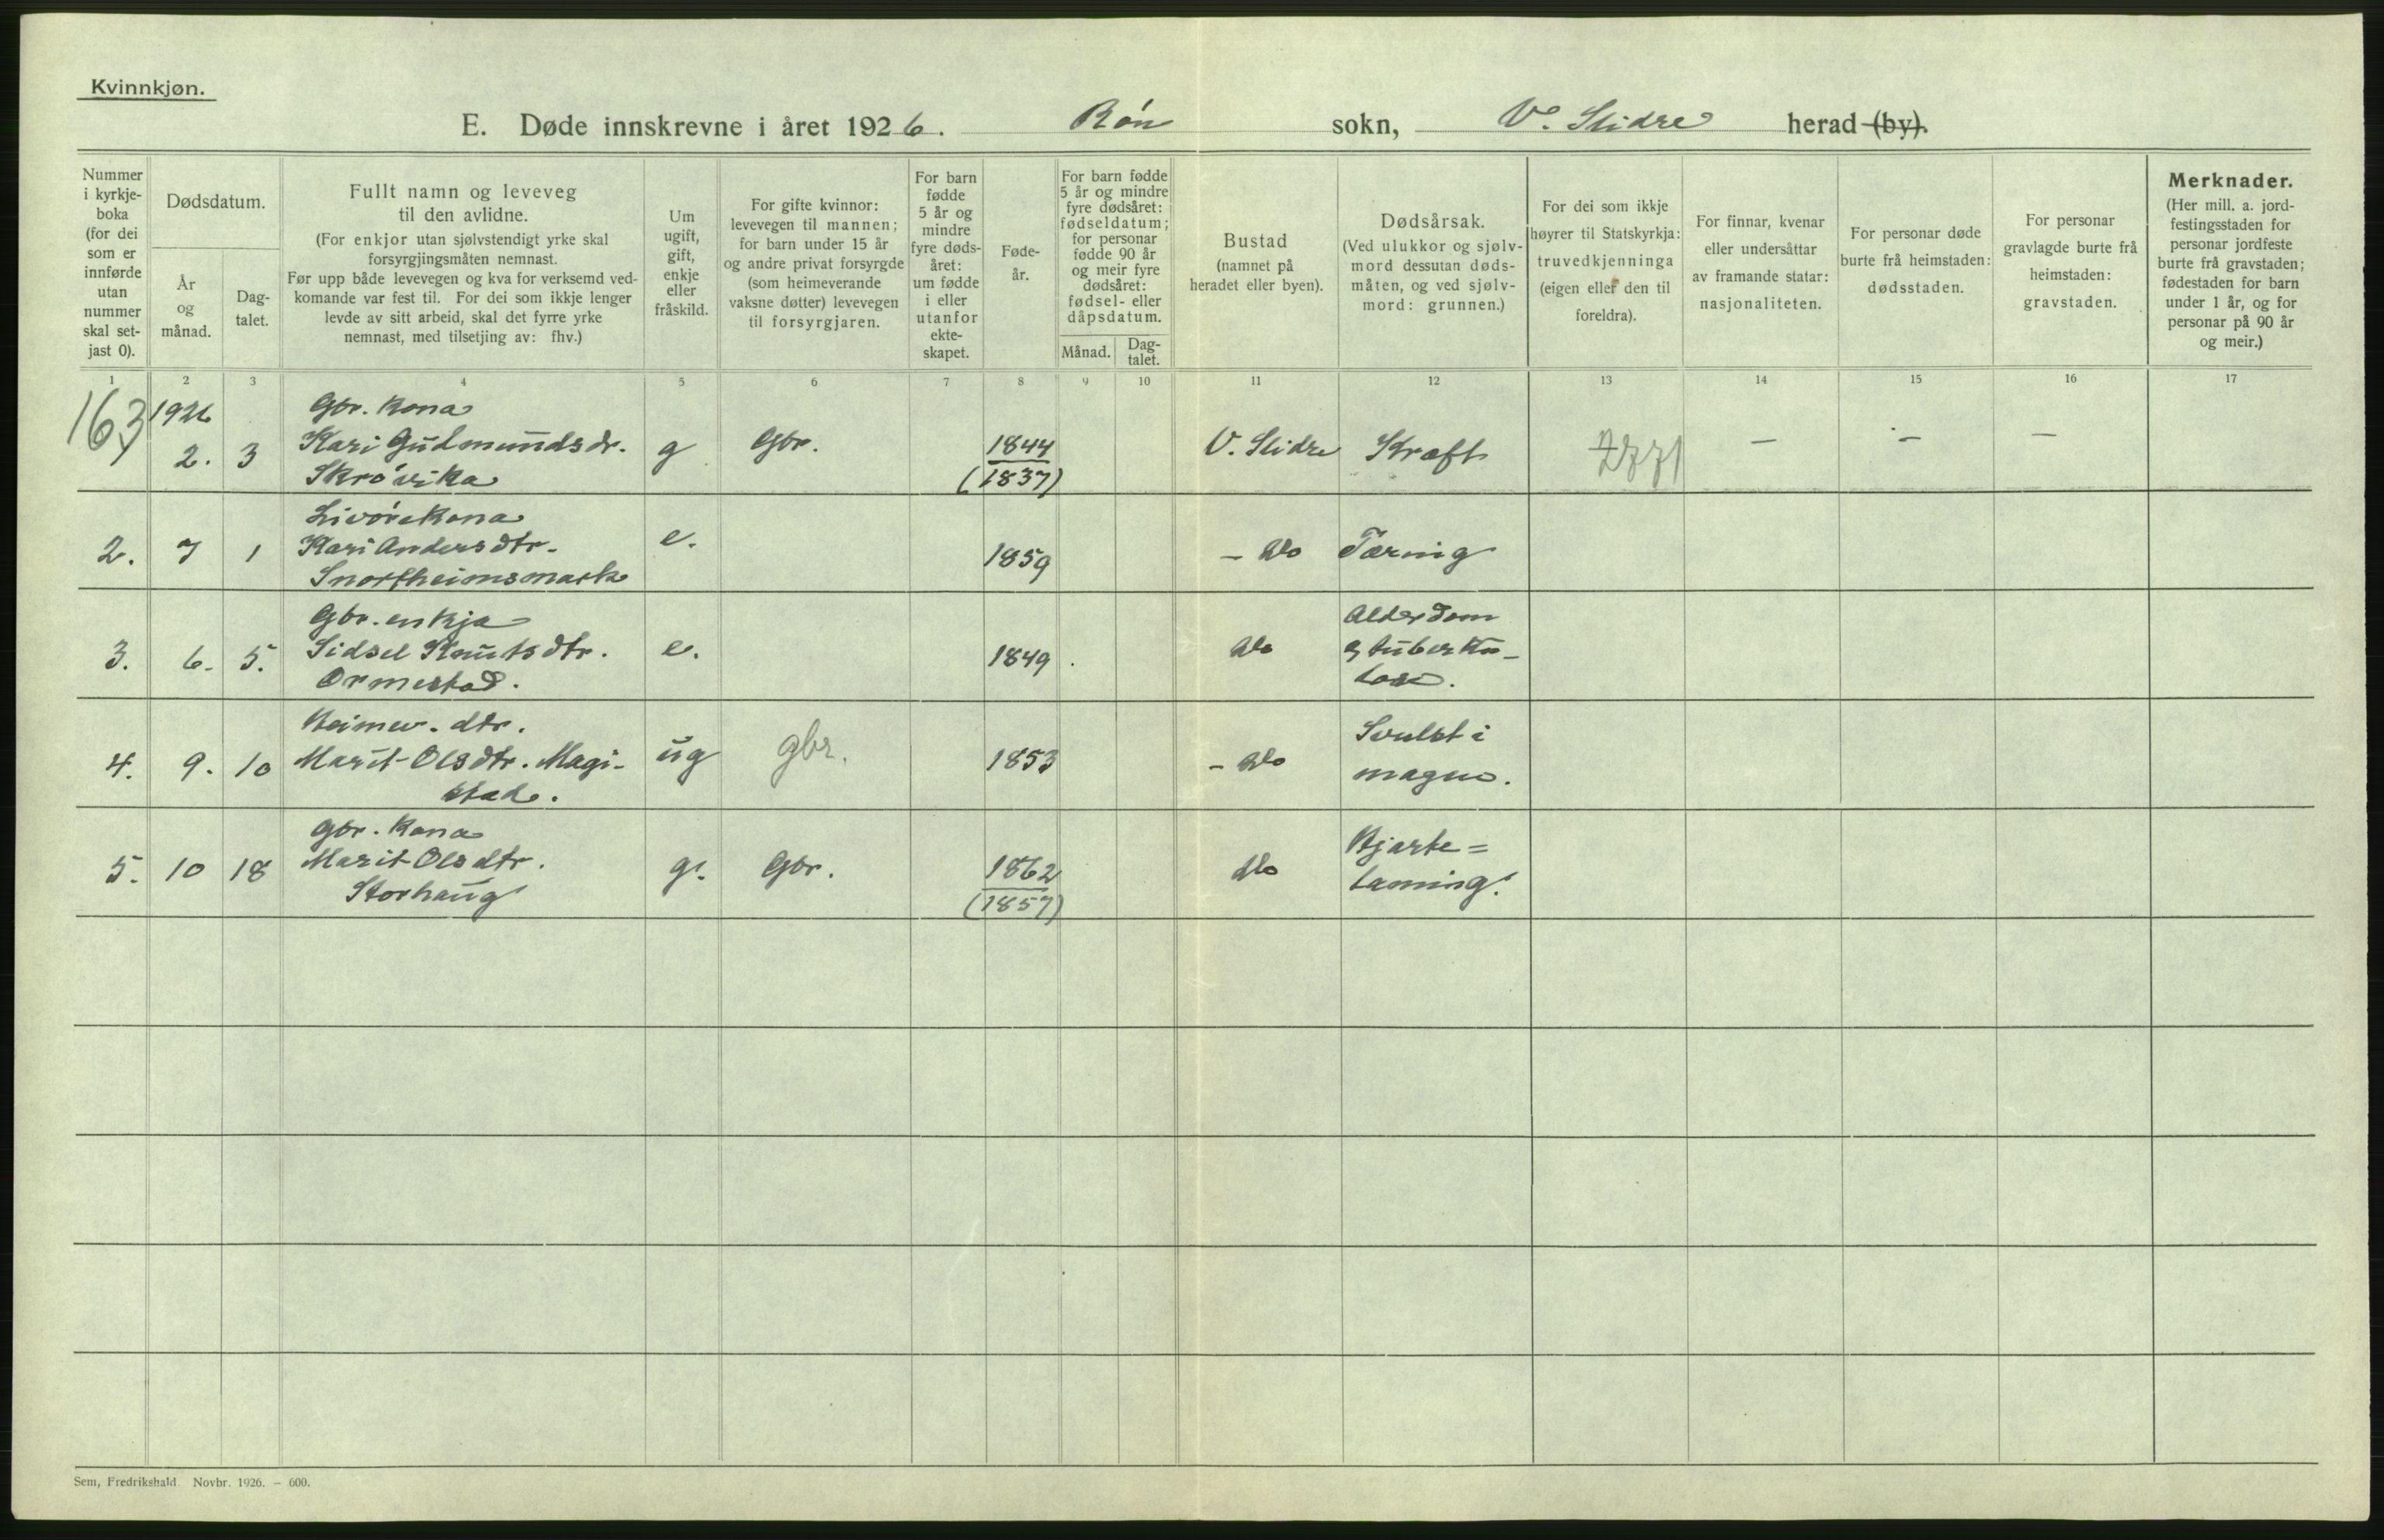 Kvinnkjøn.
E. Døde innskrevne i året 1926. Røn sokn, V. Slidre herad (by).
Nummer
i kyrkje-
boka
(for dei
som er
innførde
utan
nummer
skal set-
jast 0).
Dødsdatum.
År
og
månad.
Dag-
talet.
Fullt namn og leveveg
til den avlidne.
(For enkjor utan sjølvstendigt yrke skal
forsyrgjingsmåten nemnast.
Før upp både levevegen og kva for verksemd ved-
komande var fest til. For dei som ikkje lenger
levde av sitt arbeid, skal det fyrre yrke
nemnast, med tilsetjing av: fhv.)
Um
ugift,
gift,
enkje
eller
fråskild.
For gifte kvinnor:
levevegen til mannen;
for barn under 15 år
og andre privat forsyrgde
(som heimeverande
vaksne døtter) levevegen
til forsyrgjaren.
For barn
fødde
5 år og
mindre
fyre døds-
året:
um fødde
i eller
utanfor
ekte-
skapet.
Føde-
år.
For barn fødde
5 år og mindre
fyre dødsåret:
fødseldatum;
for personar
fødde 90 år
og meir fyre
dødsåret:
fødsel- eller
dåpsdatum.
Månad.
Dag-
talet.
Bustad
(namnet på
heradet eller byen).
Dødsårsak.
(Ved ulukkor og sjølv-
mord dessutan døds-
måten, og ved sjølv-
mord: grunnen.)
For dei som ikkje
høyrer til Statskyrkja:
truvedkjenninga
(eigen eller den til
foreldra).
For finnar, kvenar
eller undersåttar
av framande statar:
nasjonaliteten.
For personar døde
burte frå heimstaden:
dødsstaden.
For personar
gravlagde burte frå
heimstaden:
gravstaden.
Merknader.
(Her mill. a. jord-
festingsstaden for
personar jordfeste
burte frå gravstaden;
fødestaden for barn
under 1 år, og for
personar på 90 år
og meir.)
1 2 3 4 5 6 7 8 9 10 11 12 13 14 15 16 17
163 1926 Gbr. kona
2. 3 Kari Gudmundsdr. g Gbr. 1844 V. Slidre Kræft — — —
Skrøvika (1837)
Livørekona
2. 7 1 Kari Andersdtr. e. 1859 – do Tæring
Snortheimsmark
Gbr. enkja Alderdom
3. 6. 5. Sidsel Knutsdtr. e. 1849 do & tuberku-
Ormestad. lose.
Heimev. dtr. Svulst i
4. 9. 10 Marit Olsdtr. Magi- ug gbr. 1853 – do magen.
stad.
Gbr. kona Hjarte=
5. 10 18 Marit Olsdtr. g. Gbr. 1862 do lamming.
Storhaug (1857)
Sem, Fredrikshald. Novbr. 1926. — 600.